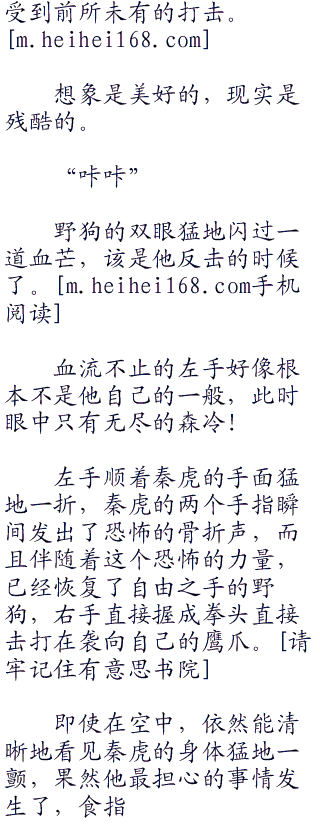 受到前所未有的打击。
[m.heihei168.com]
想象是美好的，现实是
残酷的。
“咔咔”
野狗的双眼猛地闪过一
道血芒，该是他反击的时候
了。[m.heihei168.com手机
阅读]
血流不止的左手好像根
本不是他自己的一般，此时
眼中只有无尽的森冷！
左手顺着秦虎的手面猛
地一折，秦虎的两个手指瞬
间发出了恐怖的骨折声，而
且伴随着这个恐怖的力量，
已经恢复了自由之手的野
狗，右手直接握成拳头直接
击打在袭向自己的鹰爪。[请
牢记住有意思书院]
即使在空中，依然能清
晰地看见秦虎的身体猛地一
颤，果然他最担心的事情发
生了，食指